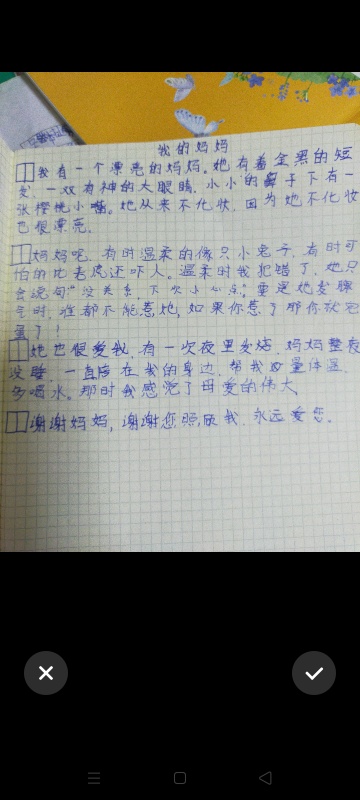 我的妈妈
我有一个漂亮的妈妈。她有着金黑的短
发，一双有神的大眼睛，小小的鼻子下有一
张樱桃小嘴。她从来不化妆，因为她不化妆
也很漂亮。
妈妈呢，有时温柔的像只小兔子，有时可
怕的比老虎还吓人。温柔时我犯错了，她只
会说句"没关系，下次小心点"，要是她发脾
气时，谁都不能惹她，如果你惹了那你就完
蛋了！
她也很爱我，有一次夜里发烧，妈妈整夜
没睡，一直陪在我的身边，帮我量体温，
多喝水。那时我感觉了母爱的伟大
谢谢妈妈，谢谢您照顾我，永远爱您。